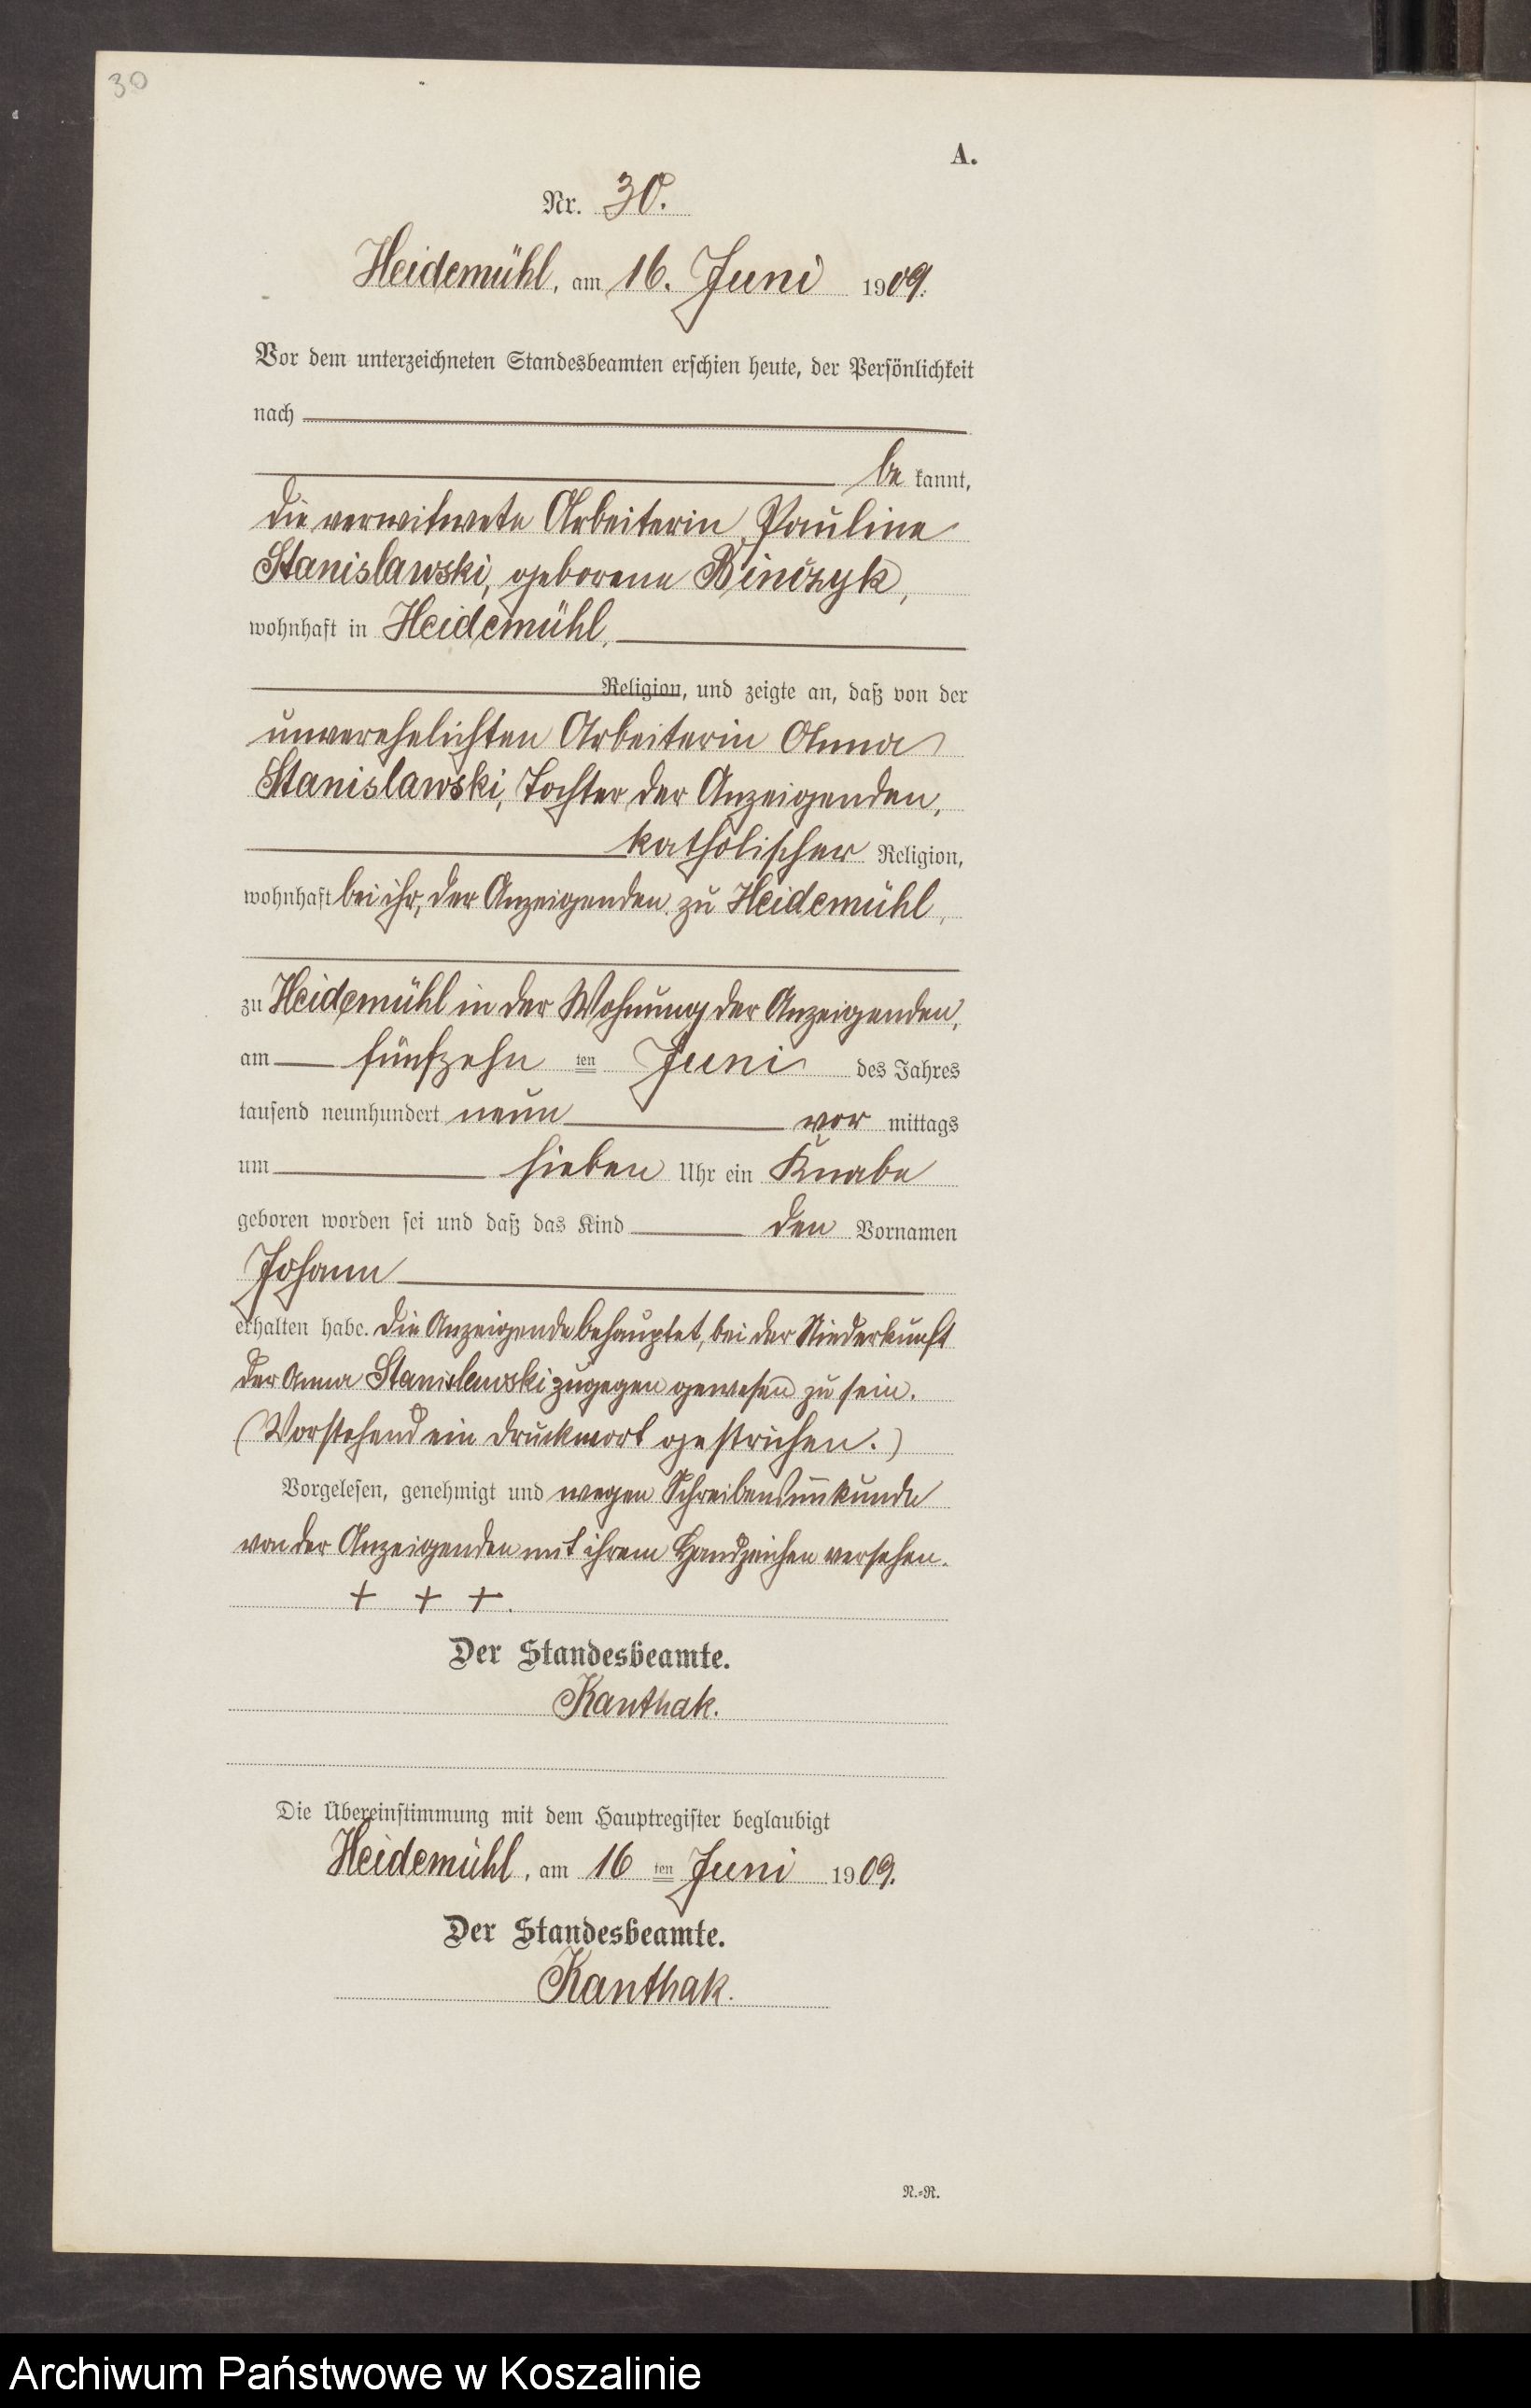 30
A.
Nr. 30.
Heidemühl, am 16. Juni 1909.
Vor dem unterzeichneten Standesbeamten erschien heute, der Persönlichkeit
nach
be kannt,
die verwitwete Arbeiterin Pauline
Stanislawski, geborene Binczyk,
wohnhaft in Heidemühl,
Religion, und zeigte an, daß von der
unverehelichten Arbeiterin Anna
Stanislawski, Tochter der Anzeigenden,
katholischer Religion,
wohnhaft bei ihr, der Anzeigenden zu Heidemühl,
zu Heidemühl in der Wohnung der Anzeigenden,
am fünfzehn ten Juni des Jahres
tausend neunhundert neun vor mittags
um sieben Uhr ein Knabe
geboren worden sei und daß das Kind den Vornamen
Johann
erhalten habe. Die Anzeigende behauptet, bei der Niederkunft
der Anna Stanislawski zugegen gewesen zu sein.
(Vorstehend ein Druckwort gestrichen.)
Vorgelesen, genehmigt und wegen Schreibensunkunde
von der Anzeigenden mit ihrem Handzeichen versehen.
+ + +.
Der Standesbeamte.
Kanthak.
Die Übereinstimmung mit dem Hauptregister beglaubigt
Heidemühl, am 16 ten Juni 1909.
Der Standesbeamte.
Kanthak.
N.=R.
Archiwum Państwowe w Koszalinie